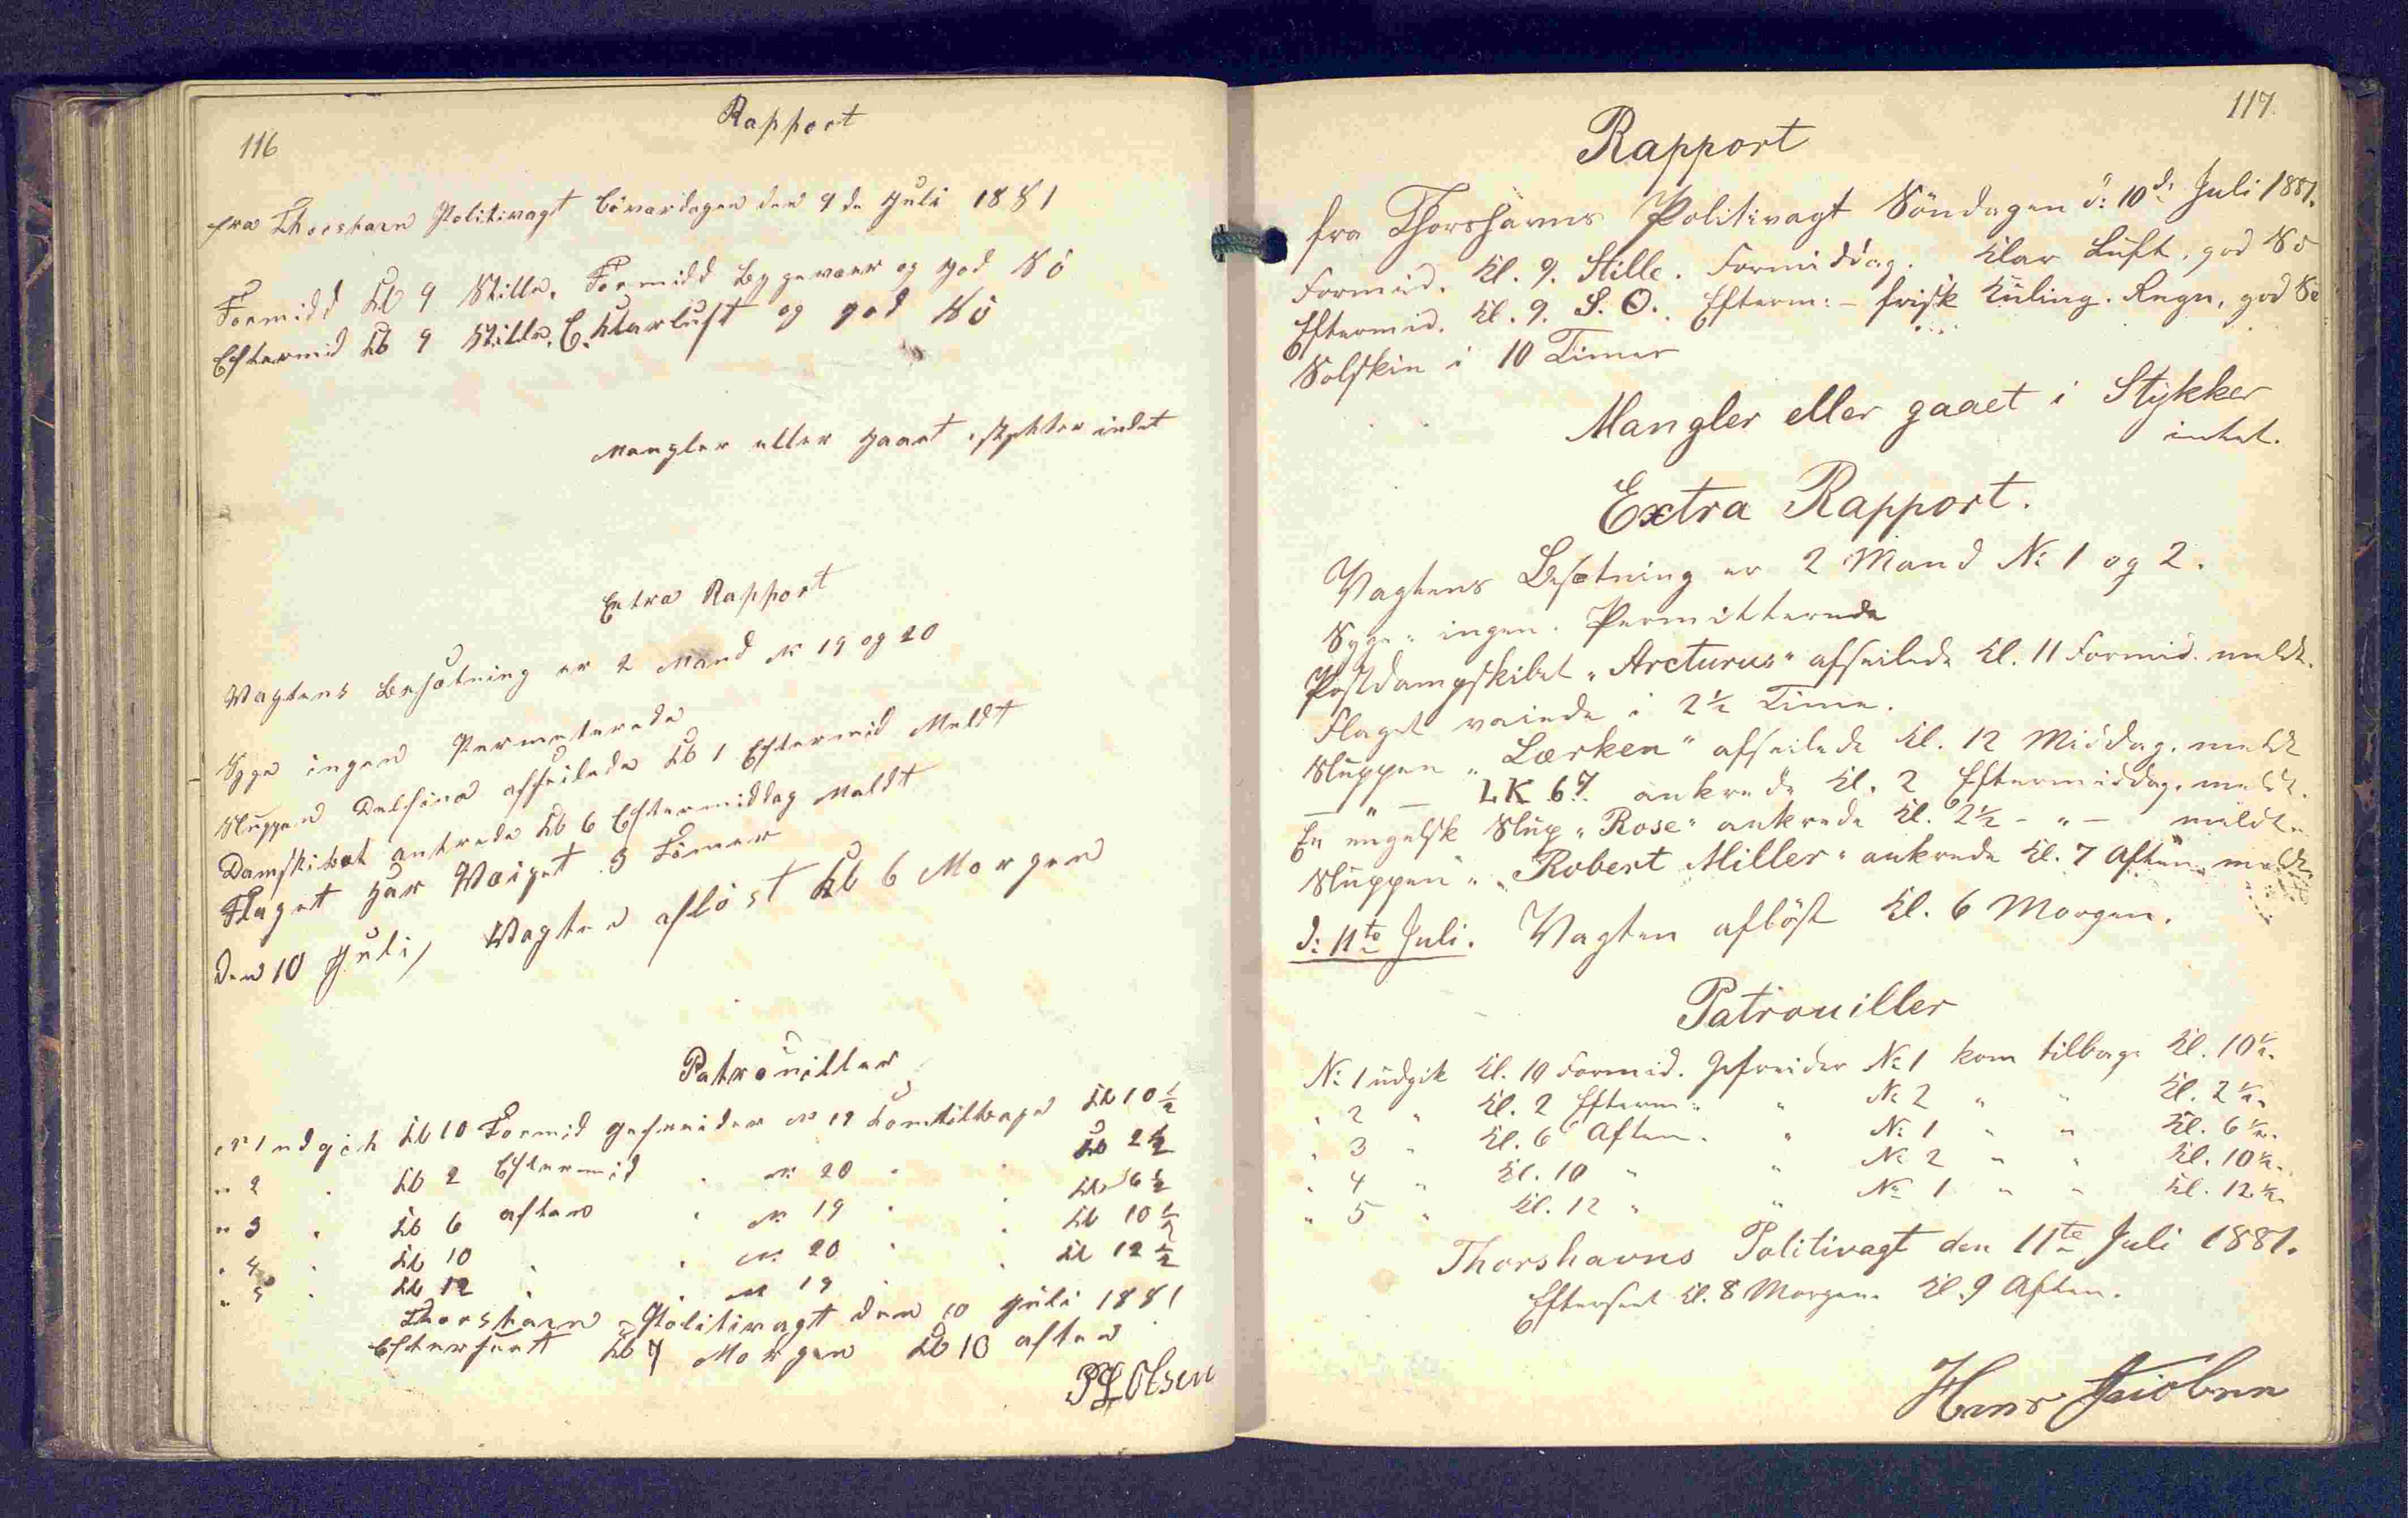 116
Rapport
fra Thorshavn Politivagt Löverdagen den 9de Juli 1881
Formidd Kl 9 Stille. Formidd Bygevær og god Sö
Eftermid Kl 9 Stille, E. klarluft og god Sö
Mangler eller gaaet i stykker indet
Extra Rapport
Vagtens Besætning er 2 Mand No 19 og 20
Syge ingen Permeterede
Sluppen Delfina afseilede Kl 1 Eftermid Meldt
Damskibet ankrede Kl 6 Eftermiddag Meldt
Flaget har Vaiget 3 Timer
Den 10 Juli, Vagten aflöst Kl 6 Morgen
Patrouiller
No 1 udgik Kl 10 Formid Gefreider No 19 komtilbage Kl 10 ½
" 2 " Kl 2 Eftermid " No 20 " " Kl 2 ½
" 3 " Kl 6 aften " No 19 " " Kl 6 ½
" 4 " Kl 10 " " No 20 " " Kl 10 ½
" 5 " Kl 12 " " No 19 " " Kl 12 ½
Thorshavn Politivagt den 10 Juli 1881
Efterseet Kl 7 Morgen Kl 10 aften
Olsen
117.
Rapport
fra Thorshavns Politivagt Söndagen d: 10de Juli 1881.
Formid. Kl. 9. Stille. Formiddag. Klar Luft, god Sö
Eftermid. Kl. 9. S. O. Efterm: - frisk Kuling. Regn, god Sö
Solskin i 10 Timer
Mangler eller gaaet i Stykker
intet.
Extra Rapport.
Vagtens Besætning er 2 Mand No 1 og 2.
Syge: ingen. Permitterede
Postdampskibet "Arcturus" afseilede Kl. 11 Formid. meldt.
Flaget vaiede i 2½ Time.
Sluppen "Lærken" afseilede Kl. 12 Middag. meldt
— " — LK 67. ankrede Kl. 2 Eftermiddag. meldt.
En engelsk Slup "Rose" ankrede Kl. 2½ - " - meldt.
Sluppen "Robert Miller" ankrede Kl. 7 Aften. meldt.
d: 11te Juli. Vagten aflöst Kl. 6 Morgen.
Patrouiller
No 1 udgik Kl. 10 Formid. Gefreider No 1 kom tilbage Kl. 10½.
" 2 " Kl. 2 Efterm: " No 2 " " Kl. 2½.
" 3 " Kl. 6 Aften. " No 1 " " Kl. 6½.
" 4 " Kl. 10 " " No 2 " " Kl. 10½.
" 5 " Kl. 12 " " No 1 " " Kl. 12½.
Thorshavns Politivagt den 11te Juli 1881.
Efterseet Kl. 8 Morgen. Kl. 9 Aften.
Hans